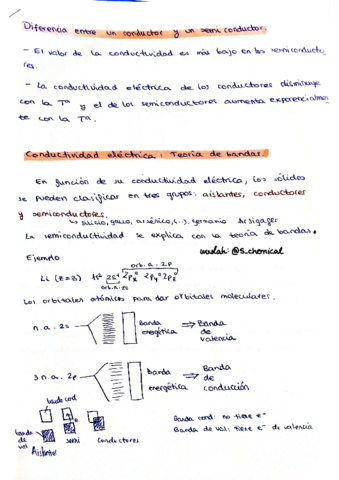 Diferencia entre un conductor y un semiconductor.
- El valor de la conductividad es más bajo en los semiconducto
res.
- La conductividad eléctrica de los conductores disminuye
con la Tª y el de los semiconductores aumenta exponencialmen
te con la Tª.
Conductividad eléctrica: Teoría de bandas.
En función de su conductividad eléctrica, los sólidos
se pueden clasificar en tres grupos: aislantes, conductores
y semiconductores.
silicio, galio, arsénico, (..), germanio
La semiconductividad se explica con la teoría de bandas.
wuolah: @S.chemical
Ejemplo
orb. a. 2p
Li (z=3) 1s² 2s¹ 2px⁰ 2py⁰ 2pz⁰
orb.a.2s
Los orbitales atómicos para dar orbitales moleculares.
n.a. 2s Banda energética ⇒ Banda de valencia
3 n.a. 2p Banda energética ⇒ Banda de conducción
banda cond
Banda cond: no tiene e⁻
banda de val
Banda de val: tiene e⁻ de valencia
Aislantes semi conductores